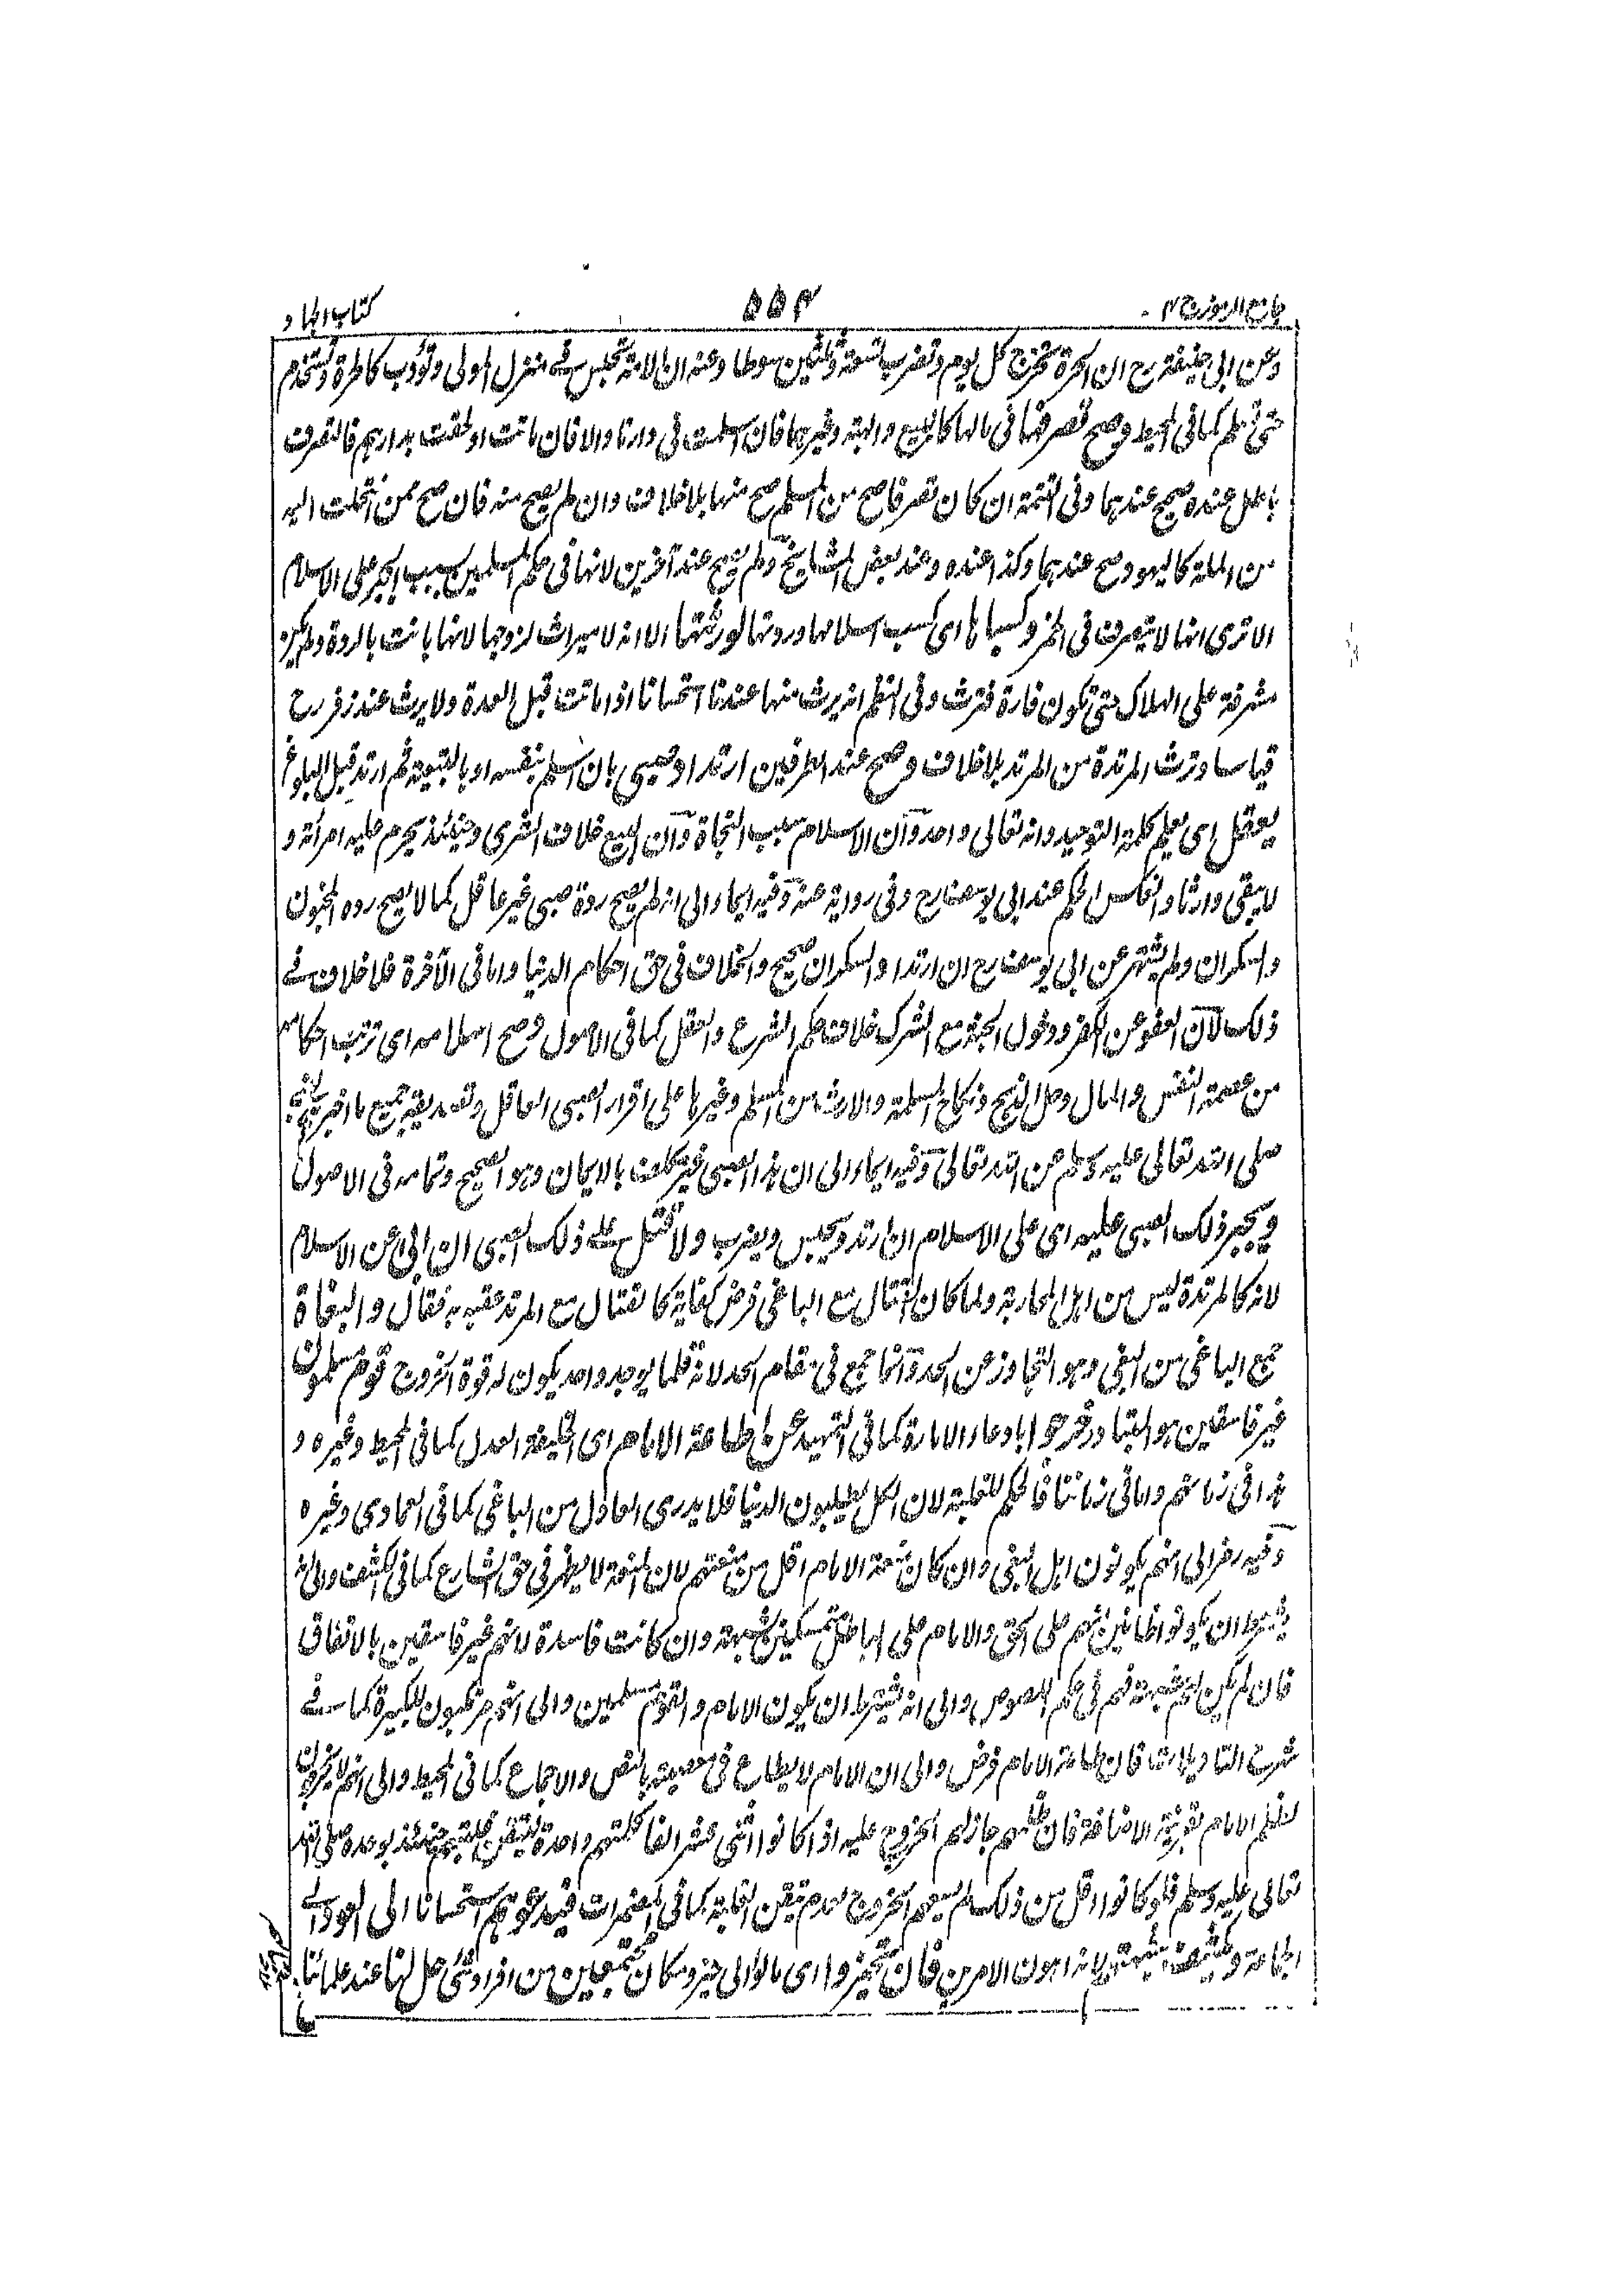 جامع الرموز ج ۲ ۵۵۴ كتاب الجهاد
وعن ابى حنيفة رح ان الحرة تخرج كل يوم وتضرب تسعة وثلثين سوطا وعنه ان الامة تحبس فى منزل المولى وتؤدب كالحرة وتستخدم
حتى تسلم كما فى المحيط وصح تصرفها فى مالها كالبيع والهبة وغيرهما فان اسلمت فى دارنا والا فان ماتت او لحقت بدارهم فالتصرف
باطل عنده صحيح عندهما وفى التتمة ان كان تصرفا صح من المسلم صح منها بلا خلاف وان لم يصح منه فان صح ممن انتحلت اليه
من الملة كاليهود صح عندهما وكذا عنده وعند بعض المشايخ ولم يصح عند آخرين لانها فى حكم المسلمين بسبب الجبر على الاسلام
الا ترى انها لا تتصرف فى الخمر وكسباها اى كسب اسلامها وردتها لورثتها الا انه لا ميراث لزوجها لانها بانت بالردة ولم تكن
مشرفة على الهلاك حتى تكون فارة فترث وفى النظم انه يرث منها عندنا استحسانا اذا ماتت قبل العدة ولا يرث عند زفر رح
قياسا وترث المرتدة من المرتد بلا خلاف وصح عند الطرفين ارتداد صبى بان اسلم بنفسه او بالتبعية ثم ارتد قبل البلوغ
يعقل اى يعلم كلمة التوحيد وانه تعالى واحد وآن الاسلام سبب النجاة وآن البيع خلاف الشرى وحينئذ يحرم عليه امرأته و
لا يبقى وارثا وانعكس الحكم عند ابى يوسف رح وفى رواية عنه وفيه ايماء الى انه لم يصح ردة صبى غير عاقل كما لا يصح ردة المجنون
والسكران ولم يشتهر عن ابى يوسف رح ان ارتداد السكران صحيح والخلاف فى حق احكام الدنيا واما فى الآخرة فلا خلاف فى
ذلك لآن العفو عن الكفر ودخول الجنة مع الشرك خلاف حكم الشرع والعقل كما فى الاصول وصح اسلامه اى ترتب احكامه
من عصمة النفس والمال وحل الذبح ونكاح المسلمة والارث من المسلم وغيرها على اقرار الصبى العاقل وتصديقه بجميع ما اخبر
صلى الله تعالى عليه وسلم عن الله تعالى وفيه ايماء الى ان هذا الصبى غير مكلف بالايمان وهو الصحيح وتمامه فى الاصول
ويجبر ذلك الصبى عليه اى على الاسلام ان ارتد ويحبس ويضرب ولا قتل على ذلك الصبى ان ابى عن الاسلام
لانه كالمرتدة ليس من اهل المحاربة ولما كان القتال مع الباغى فرض كفاية كالقتال مع المرتد عقبه به فقال والبغاة
جمع الباغى من البغى وهو التجاوز عن الحد وآنما جمع فى مقام الحد لانه قلما يوجد واحد يكون له قوة الخروج قوم مسلمون
غير فاسقين هو المتبادر خرجوا بادعاء الامارة كما فى التمهيد عن طاعة الامام اى الخليفة العدل كما فى المحيط وغيره و
هذا فى زمانهم واما فى زماننا فالحكم للغلبة لان الكل يطلبون الدنيا فلا يدرى العادل من الباغى كما فى العمادى وغيره
وفيه رمز الى انهم يكونون اهل البغى وان كان منعة الامام اقل من منعتهم لان المنعة لا يظهر فى حق الشارع كما فى الكشف والى انه
يشترط ان يكونوا ظانين انهم على الحق والامام على الباطل متمسكين بشبهة وان كانت فاسدة لانهم غير فاسقين بالاتفاق
فان لم يكن لهم شبهة فهم فى حكم اللصوص والى انه يشترط ان يكون الامام والقوم مسلمين والى انهم مرتكبون للكبيرة كما فى
شرح التاويلات فان طاعة الامام فرض والى ان الامام لا يطاع فى معصية بالنص والاجماع كما فى المحيط والى انهم لا يخرجون
لظلم الامام بقرينة الاضافة فان ظلمهم جاز لهم الخروج عليه اذا كانوا اثنى عشر الفا كلمتهم واحدة لتيقن غلبتهم حينئذ بوعده صلى الله
تعالى عليه وسلم فلو كانوا اقل من ذلك لم يسعهم الخروج لعدم تيقن الغلبة كما فى المضمرات فيدعوهم استحسانا الى العود الى
الجماعة ويكشف شبهتهم لانه اهون الامرين فان تحيزوا اى مالوا الى حيز ومكان مجتمعين من افراد شتى حل لنا عند علمائنا